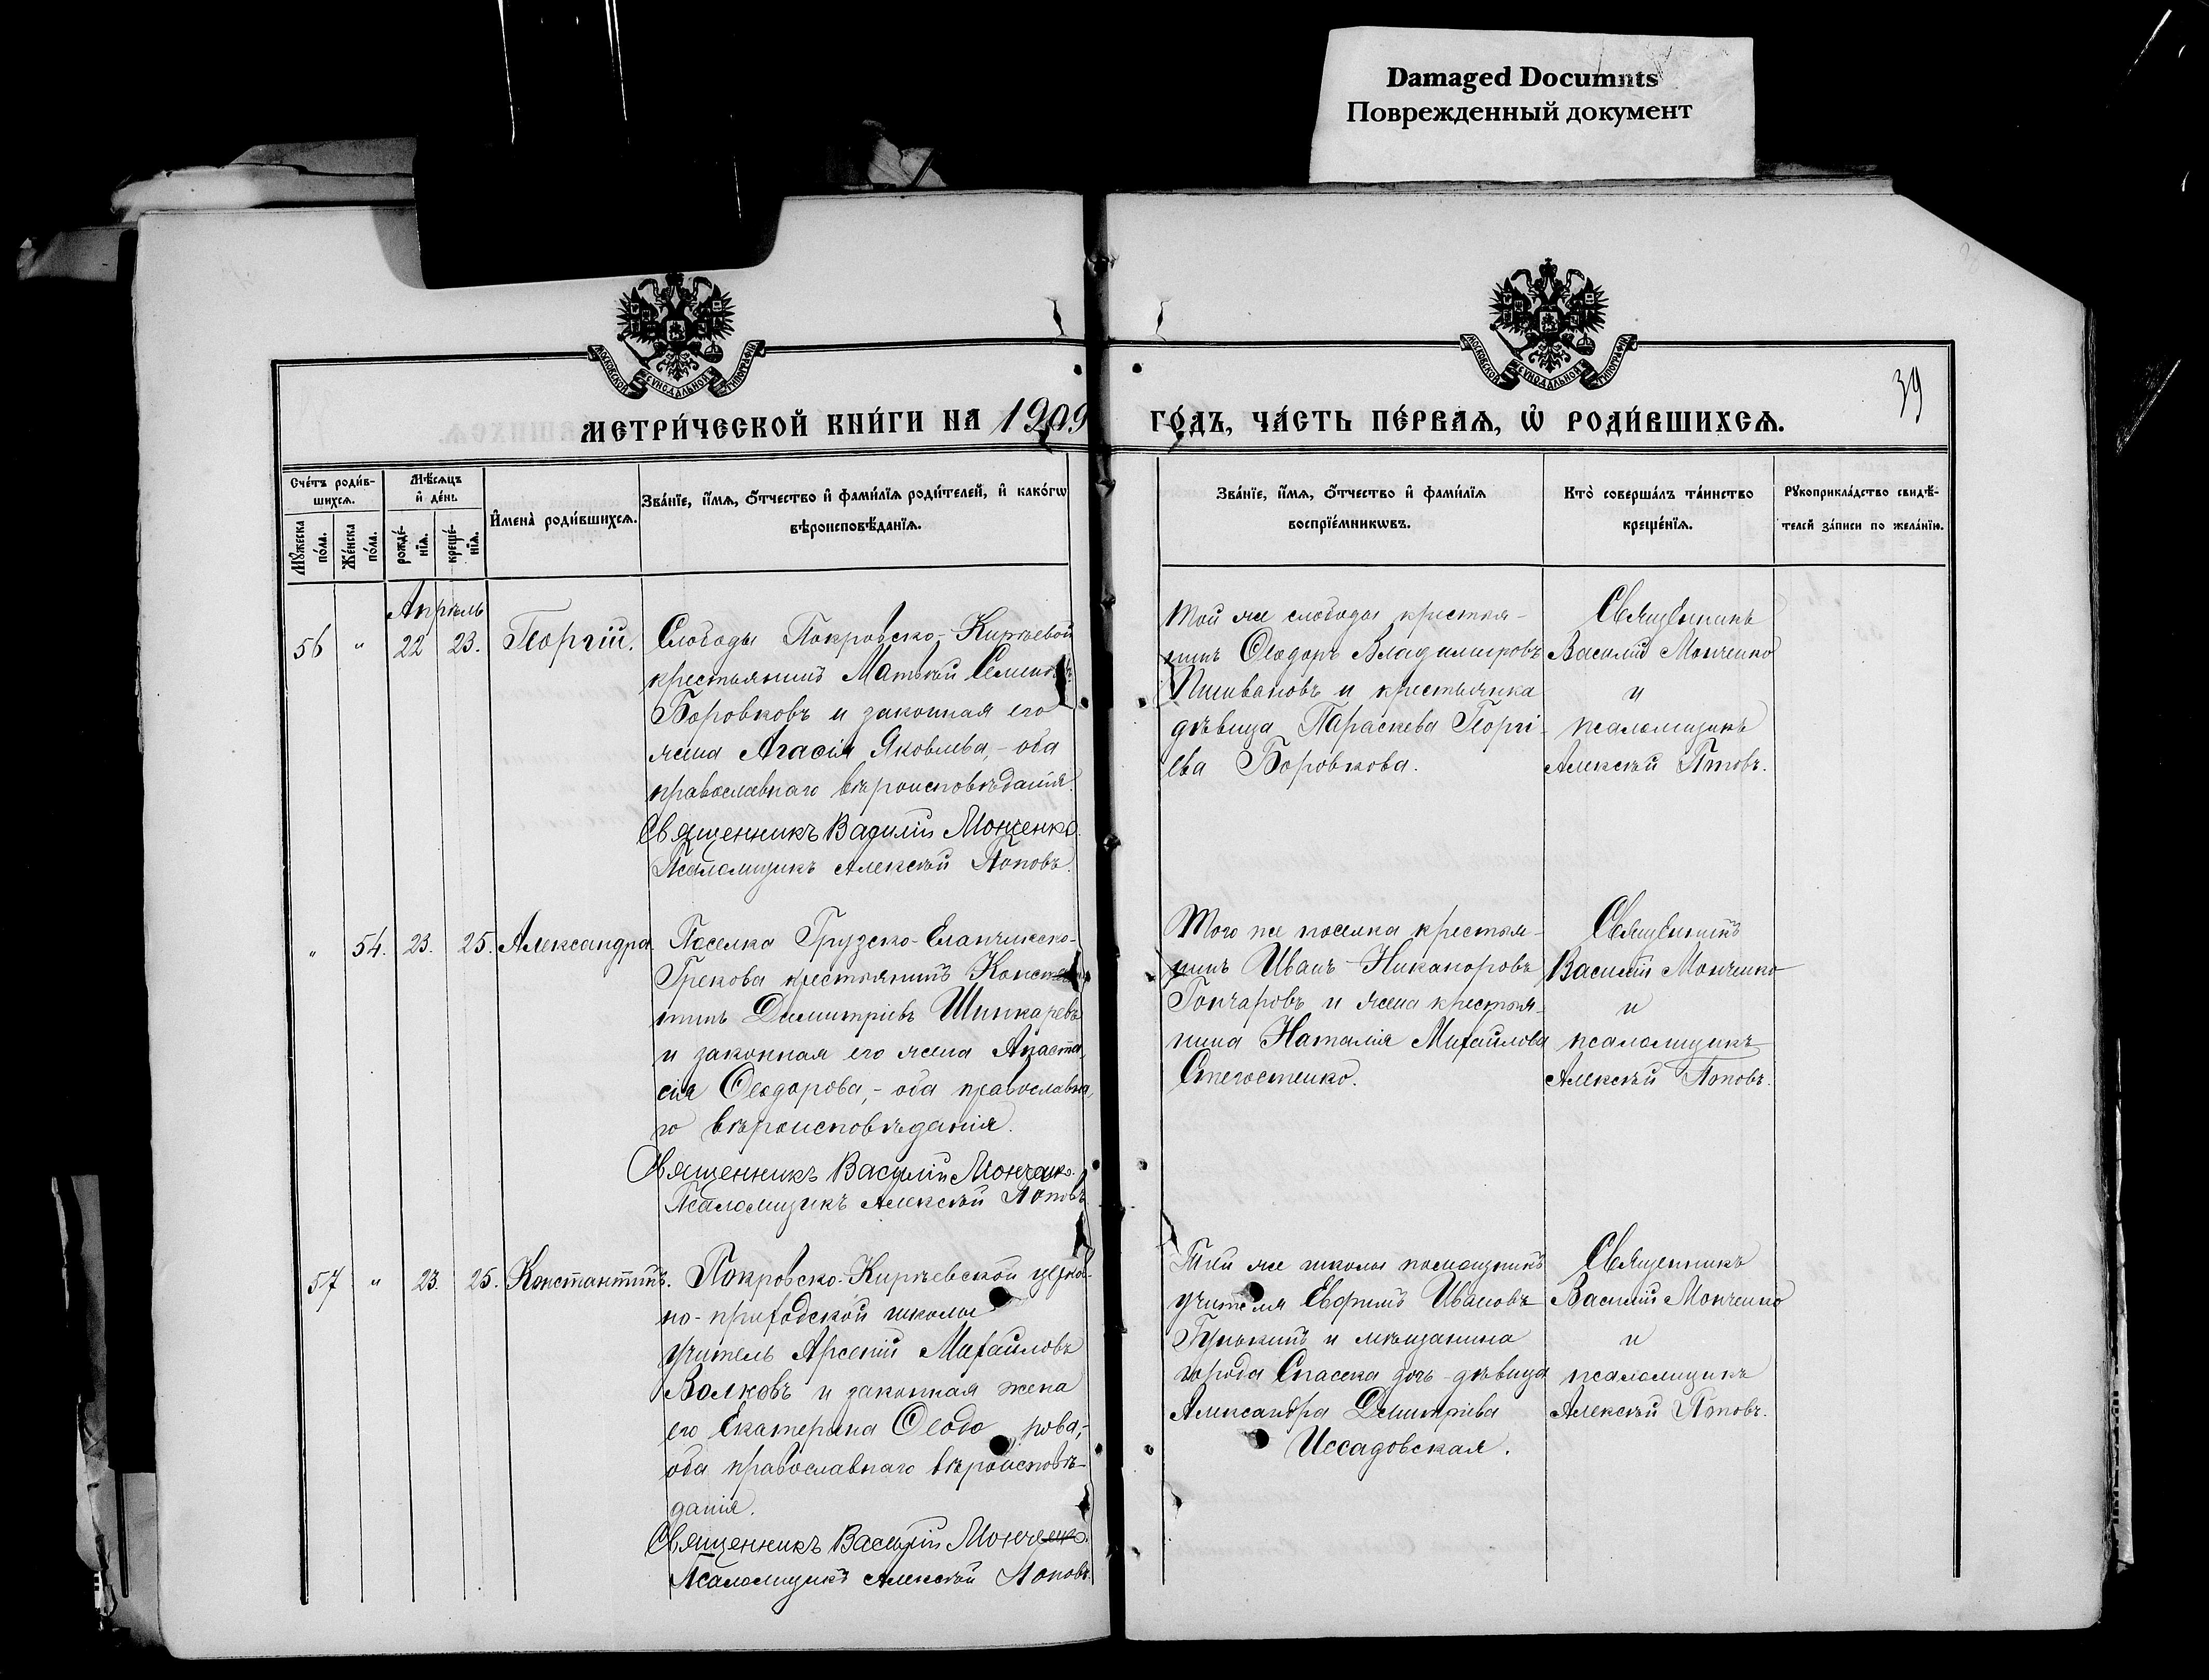 Damaged Documnts
Поврежденный документ
МОСКОВСКОЙ СѴНОДАЛЬНОЙ ТИПОГРАФІИ
МОСКОВСКОЙ СѴНОДАЛЬНОЙ ТИПОГРАФІИ
39
МЕТРИ́ЧЕСКОЙ КНИ́ГИ НА 1909 ГО́ДЪ, ЧА́СТЬ ПЕ́РВАѦ, Ѡ҆ РОДИ́ВШИХСѦ.
Сче́тъ роди́в-
шихсѧ.
Мꙋ́жеска по́ла.
Же́нска по́ла.
Мѣ́сѧцъ и҆ де́нь
рожде́-нїѧ.
креще́-нїѧ.
И҆мена̀ роди́вшихсѧ.
Зва́нїе, и҆́мѧ, ѻ҆́тчество и҆ фами́лїѧ роди́телей, и҆ како́гѡ
вѣроисповѣ́данїѧ.
Зва́нїе, и҆́мѧ, ѻ҆́тчество и҆ фами́лїѧ
воспрїе́мникѡвъ.
Кто̀ соверша́лъ та́инство
креще́нїѧ.
Рꙋкоприкла́дство свидѣ́-
телей за́писи по жела́нїю.
Апрѣль
56 " 22 23. Георгій.
Слободы Покровско-Кирѣевой
крестьянинъ Матвѣй Семеновъ
Боровковъ и законная его
жена Агаѳія Яковлева,- оба
православнаго вѣроисповѣданія.
Священникъ Василій Монченко.
Псаломщикъ Алексѣй Поповъ.
Той же слободы крестья-
нинъ Ѳеодоръ Владимировъ
Пшивановъ и крестьянка
дѣвица Параскева Георгі-
ева Боровкова.
Священникъ
Василій Монченко
и
псаломщикъ
Алексѣй Поповъ.
" 54. 23. 25. Александра
Поселка Грузско-Еланчикско-
Грекова крестьянинъ Констан-
тинъ Димитріевъ Шинкаревъ
и законная его жена Анаста-
сія Ѳеодорова,- оба православна-
го вѣроисповѣданія.
Священникъ Василій Монченко.
Псаломщикъ Алексѣй Поповъ
Того же поселка крестья-
нинъ Иванъ Никаноровъ
Гончаровъ и жена крестья-
нина Наталія Михайлова
Стегостенко.
Священникъ
Василій Монченко
и
псаломщикъ
Алексѣй Поповъ.
57 " 23. 25. Константинъ.
Покровско-Кирѣевской церков-
но-приходской школы
учитель Арсеній Михайловъ
Волковъ и законная жена
его Екатерина Ѳеодорова,-
оба православнаго вѣроисповѣ-
данія.
Священникъ Василій Монченко.
Псаломщикъ Алексѣй Поповъ.
Той же школы помощникъ
учителя Евфимъ Ивановъ
и мѣщанина
города Спасска дочь-дѣвица
Александра Димитріева
Иссадовская.
Священникъ
Василій Монченко
и
псаломщикъ
Алексѣй Поповъ.